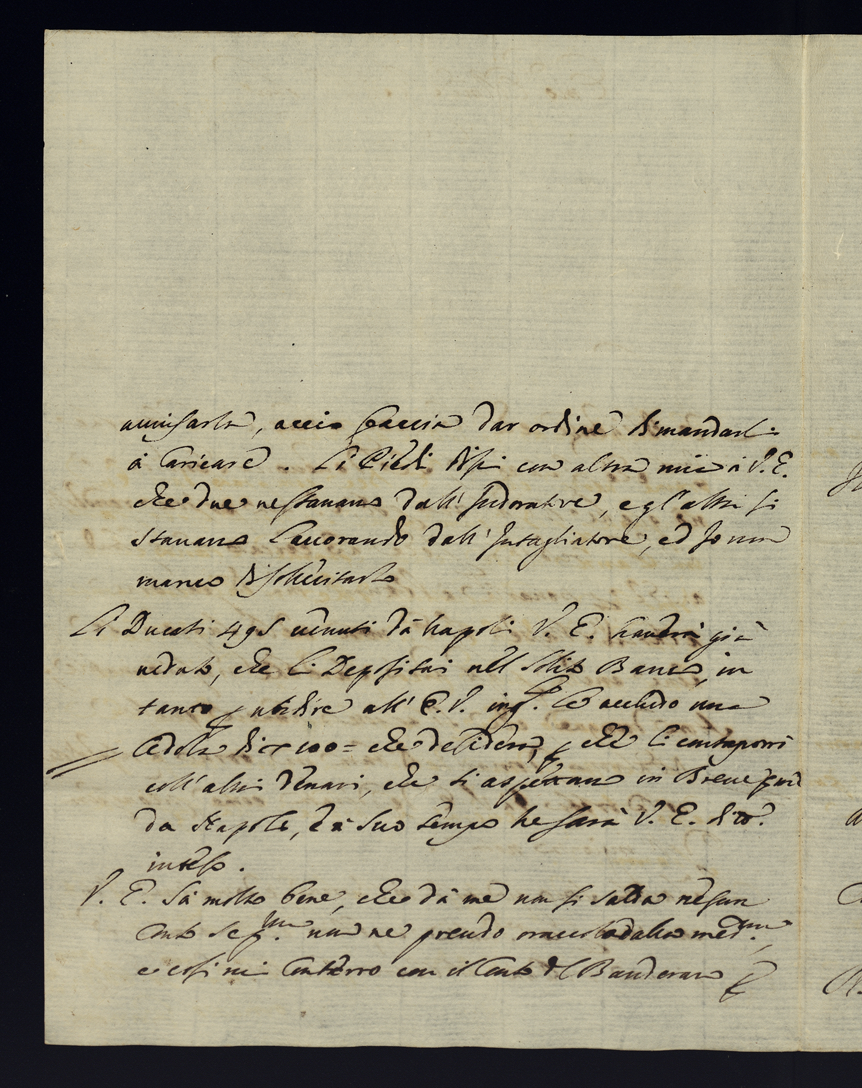 avvisarla, acciò faccia dar ordine di mandarli
à caricare. Li Piedi dissi con altra mia à V. E.
che due ne stavano dall'Indoratore, e gl'altri si
stavano lavorando dall'Intagliatore, ed Io non
manco di sollicitarlo
Li Ducati 495 venuti dà Napoli V. E. haverà già
veduto, che li Depositai nell solito Banco, in
tanto p ubidire all' E. V. le accludo una
Cedola di 100= che desidera, che li
coll'altri denari, che si aspettano in Breve
da Napoli, e à suo tempo ne sarà V. E. di
inteso.
V. E. sà molto bene, che dà me non si salda nessun
Conto se non ne prendo oracolo dalla med.ma
e così mi conterrò con il Conto del Banderaro